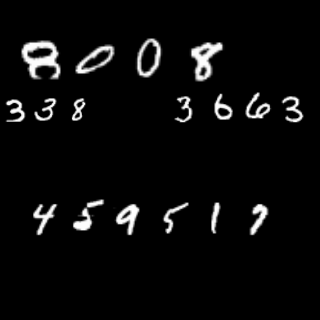 8008
338 3663
459517